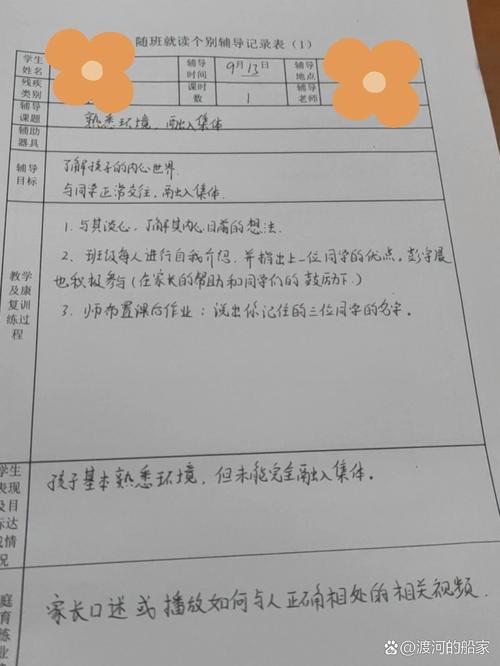 随班就读个别辅导记录表（1）
学生姓名 辅导时间 9月13日 辅导地点
残疾类别 课时数 1 辅导老师
辅导课题 熟悉环境，融入集体
辅助器具
辅导目标 了解孩子的内心世界.
与同学正常交往，融入集体.
教学及康复训练过程
1. 与其谈心，了解其内心目前的想法.
2. 班级每人进行自我介绍，并指出上一位同学的优点，彭宇晨
也积极参与（在家长的帮助和同学们的鼓励下.）
3. 师布置课后作业：说出你记住的三位同学的名字。
学生表现及目标达成情况
孩子基本熟悉环境，但未能完全融入集体。
庭育练业
家长口述或播放如何与人正确相处的相关视频.
渡河的船家